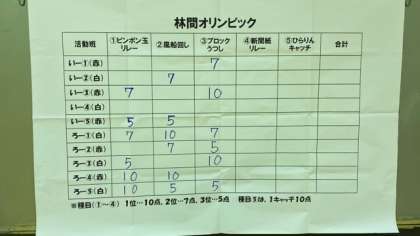 林間オリンピック
活動班 ①ピンポン玉リレー ②風船回し ③ブロックうつし ④新聞紙リレー ⑤ひらりんキャッチ 合計
い－1(赤) 7
い－2(白) 7
い－3(赤) 7 10
い－4(白)
い－5(赤) 5 5
ろ－1(白) 7 10 7
ろ－2(赤) 7 5
ろ－3(白) 5 10
ろ－4(赤) 10 10
ろ－5(白) 10 5 5
※種目(①～④) 1位…10点, 2位…7点, 3位…5点 種目5は, 1キャッチ10点